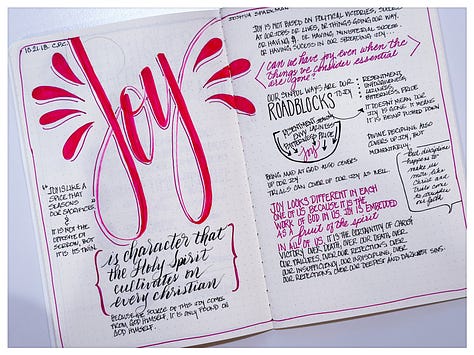 10.21.18. C.P.C.
Joy
"Joy is like a
spice that
seasons
our sacrifice,
&
it's not the
opposite of
sorrow, but
it's its twin."
is character that
the Holy Spirit
cultivates on
every christian
Because the source of this joy come
from God himself, it is only found on
God himself.
Joy is not based on political victories, success
at our jobs or lives, or things going our way.
or having $. or having ministerial success.
or having success in our
can we have joy even when the
things we consider essential
are gone?
Our sinful ways are our
ROADBLOCKS to joy
resentment,
laziness,
bitterness, pride
Resentment
envy laziness
bitterness pride
Joy
It doesn't mean our
joy is gone it means
it is being pushed down
Divine discipline also
covers up joy, but
momentarily.
but discipline
happens to
make us
more like
Christ and
trials come
to strengthen
our faith
Being mad at God also covers
up our joy
trials can cover up our joy as well.
Joy looks different in each
one of us because it is the
work of God in us. Joy is embedded
as a fruit of the spirit
in all of us. It is the
victory over death, over our
our failures, over our rejections, over
our insufficiency, our indiscipline, over
our rejections, over our deepest and darkest sins.